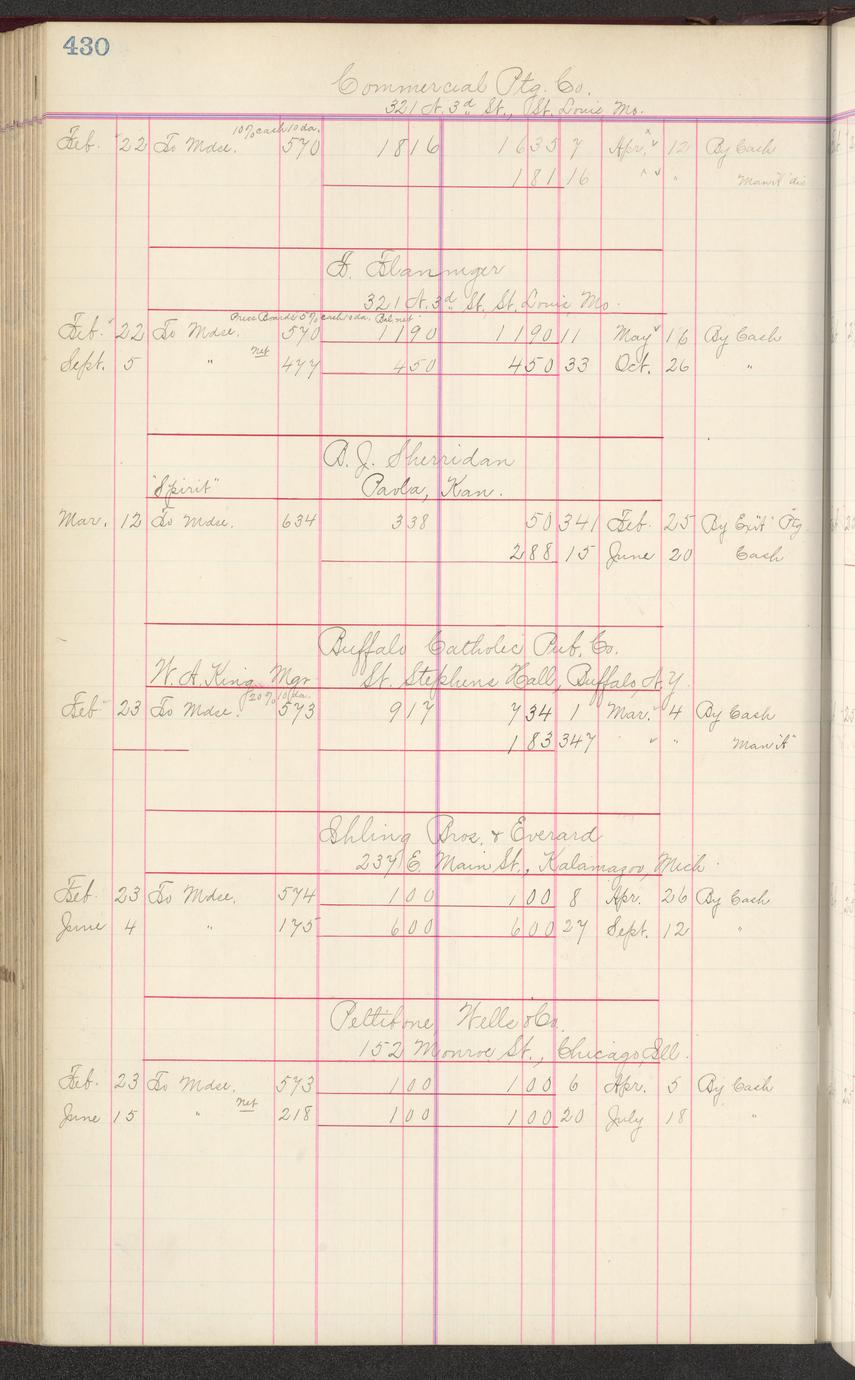 430
Commercial Ptg. Co.
321 N. 3d St., St. Louis Mo.
10% cash 10 da.
Feb. 22 To Mdse. 570 1816 1635 7 Apr. 12 By Cash
181 16 " " Man'f' dis
321 N. 3d St, St. Louis Mo.
Press Boards 5% cash 10 da. Bal net.
Feb. 22 To Mdse. 570 1190 1190 11 May 16 By Cash
Sept. 5 " net 477 450 450 33 Oct. 26 "
B. J. Sherridan
"Spirit" Paola, Kan.
Mar. 12 To Mdse. 634 338 50 341 Feb. 25 By Ptg.
288 15 June 20 Cash
Buffalo Catholic Pub. Co.
W. A. King, Mgr St. Stephens Hall, Buffalo, N.Y.
20% 10 da.
Feb 23 To Mdse. 573 917 734 1 Mar. 4 By Cash
183 347 " "
Ihling Bros. & Everard
237 E. Main St., Kalamazoo, Mich.
Feb. 23 To Mdse. 574 100 100 8 Apr. 26 By Cash
June 4 " 175 600 600 27 Sept. 12 "
Pettibone, Wells & Co.
152 Monroe St., Chicago, Ill.
Feb. 23 To Mdse. 573 100 100 6 Apr. 5 By Cash
June 15 " net 218 100 100 20 July 18 "